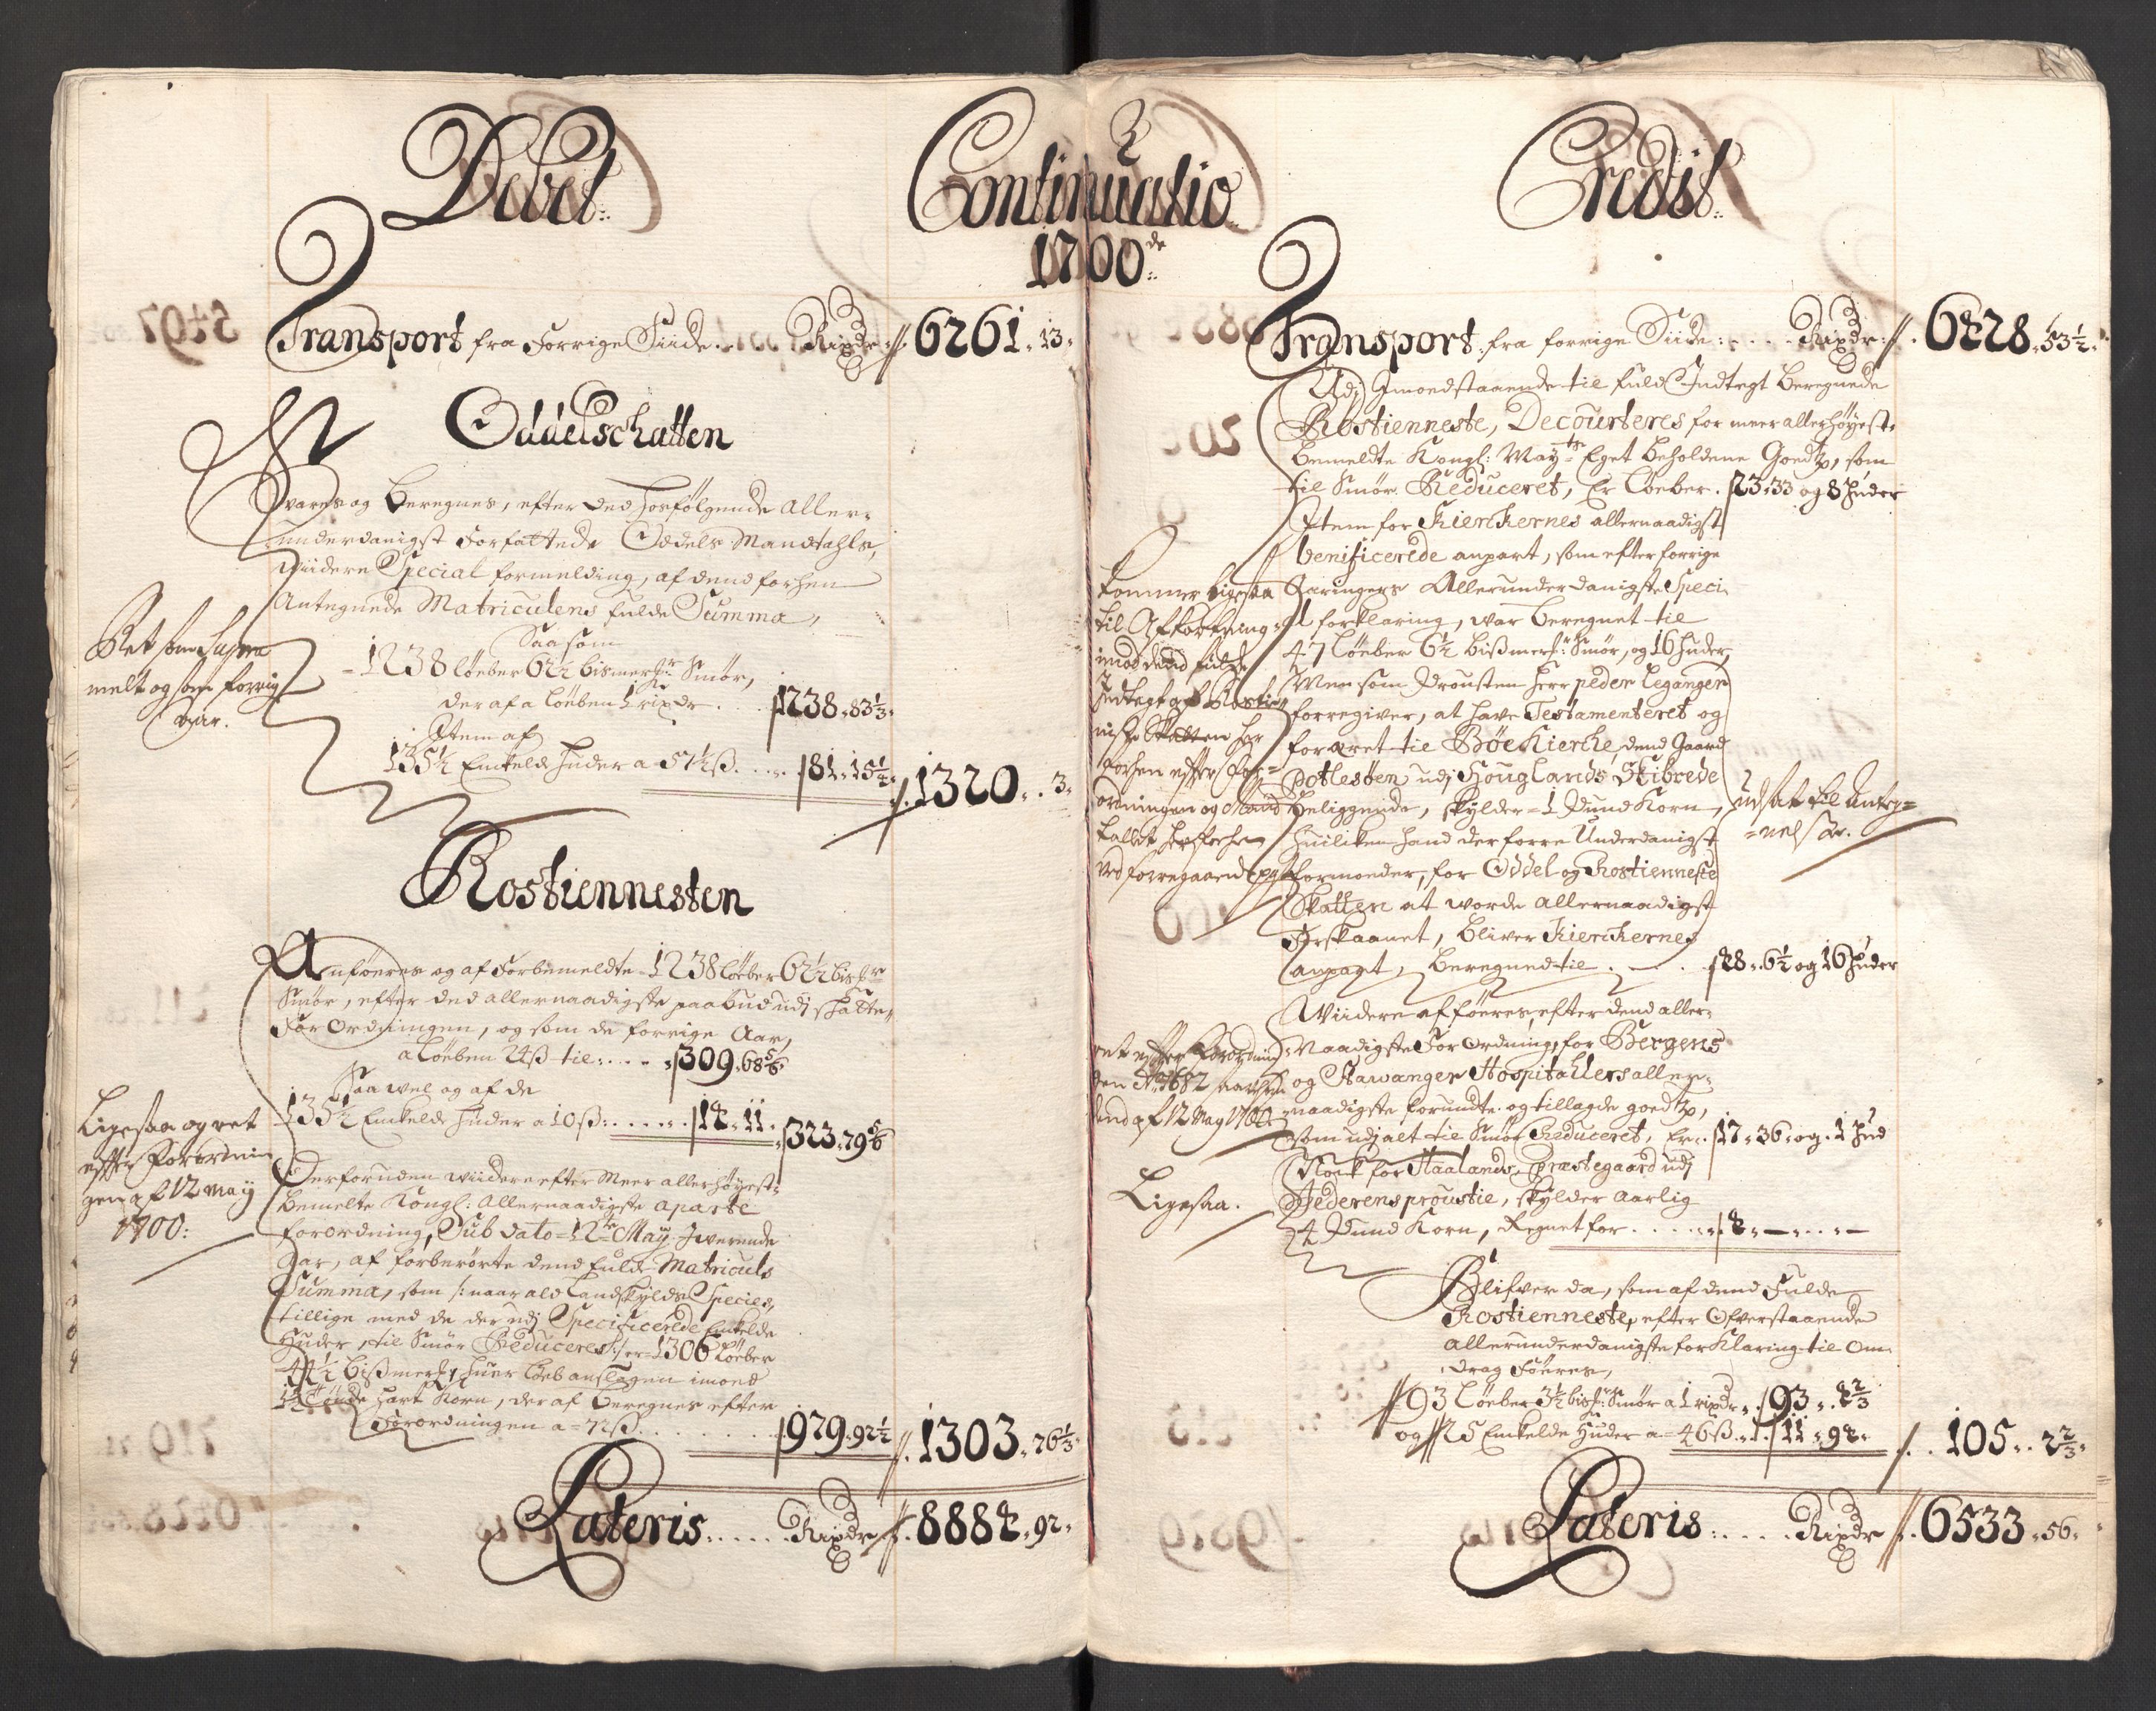 Debet
Continuatio
1700de
Transport fra Forrige Siide . . Rixdr 6261 . 13
Oddelschatten
Svares og Beregnes, efter ded hosfølgende Aller-
underdanigst Forfattede Oddels Mandtahls,
Viidere Special formelding, af dend forhen
Antegnede Matriculens fulde Summa,
Saasom
1238 løeber 62½ bismer Smør,
der af a løeben 1 rixdr . . 1238 . 83⅓
Item af
135½ Enkelde Huder a 57½ß . . . 81 . 15¼ 1320 . . 3
Ret som Supra
melt og som forrig
Aar.
Rostiennesten
Anføeres og af Forbemeldte 1238 løeber 62½ bis
Smør, efter ded allernaadigste paabud udj schatte
For Ordningen, og som de forrige Aar,
a løeben 24ß til: . . . . 309 . 68⅚
Saa vel og af de
135½ Enkelde huder a 10ß: . . . . . 14 . 11 . 323 . 79⅚
Ligesaa og ret
efter Forordnin
gen af 12 Maij
1700:
Derforuden viidere efter Meer allerhøyest-
bemelte Kongl: Allernaadigste aparte
Forordning, Sub dato 12te May Jwerende
Aar, af forberørte dend fulde Matriculs
Summa, som /: naar ald Landskylds Species,
tillige med de der udj Specificerede Enkelde
Huder, til Smør Reduceres :/ er 1306 Løeber
bismer, huer løeb anslagen imoed
Tønde hart Korn, der af beregnes efter
Forordningen a 72ß . . . . . . . 979 . 92½ 1303 . 76⅓
Lateris . . . . . Rixdr 8884 . 92
Credit
Transport fra forrige Siide: . . . . Rixdr . 6428 . 53½
Udj Jmoedstaaende til fuld Indtegt Beregnede
Rostienneste, Decourteres for meer allerhøyest-
bemeldte Kongl: Mayts Eget beholdene Goedtz, som
til Smør Reduceret, Er Løeber . 23 . 33 og 8 huder
Item for Kierkernes allernaadigst
benificerede anpart, som efter forrige
Aaringers Allerunderdanigste Speci
al forklaring, war beregnet til
47 løeber 6½ bismer Smør, og 16 huder,
Men som Prousten Herr peder Leganger
forregiver, at have Testamenteret og
foræret til Bøe Kierche, dend Gaard
Potlesøen udj Houglands Skibrede
Beliggende, skylder 1 Pund Korn,
huilcken hand derforre Underdanigst
formoeder, for Oddel og Rostienneste
Skatten at worde allernaadigst
Forskaanet, bliver Kierkernes
anpaart, beregned til . . . 48 . 6½ og 16 huder
kommer ligesaa
til Afkortning
imod dend fulde
Indtegt af Rostie
niste Skatten som
forhen efter For-
ordningen og Mand
tallet
ved foregaaende
udsat til Anteg-
nelse.
Viidere afføeres, efter dend aller-
Naadigste For Ordning, for Bergens
og Stawanger Hospitahlers aller-
naadigste forundte og tillagde goedtz,
som udj alt til Smør Reduceret, Er . 17 . 36 . og . 1 hud
ret efter Forordnin
gen Ao 1682
dend af 12 May 1700
Nock for Haalands Præstegaard udj
Jederens proustie, skylder aarlig
24 Pund Korn, Regnet for . . . . . . 4 . — . . —
Ligesaa.
Blifver da, som af dend Fulde
Rostienneste, efter Ofverstaaende
allerunderdanigste forklaring til Om
drag Føeres,
93 løeber 3½ bis: Smør a 1 rixdr . 93 . 4⅔
og 25 Enkelde Huder a 46ß . . 11 . 94 . . 105 . . 2⅔
Lateris . . . . Rixdr . 6533 . 56